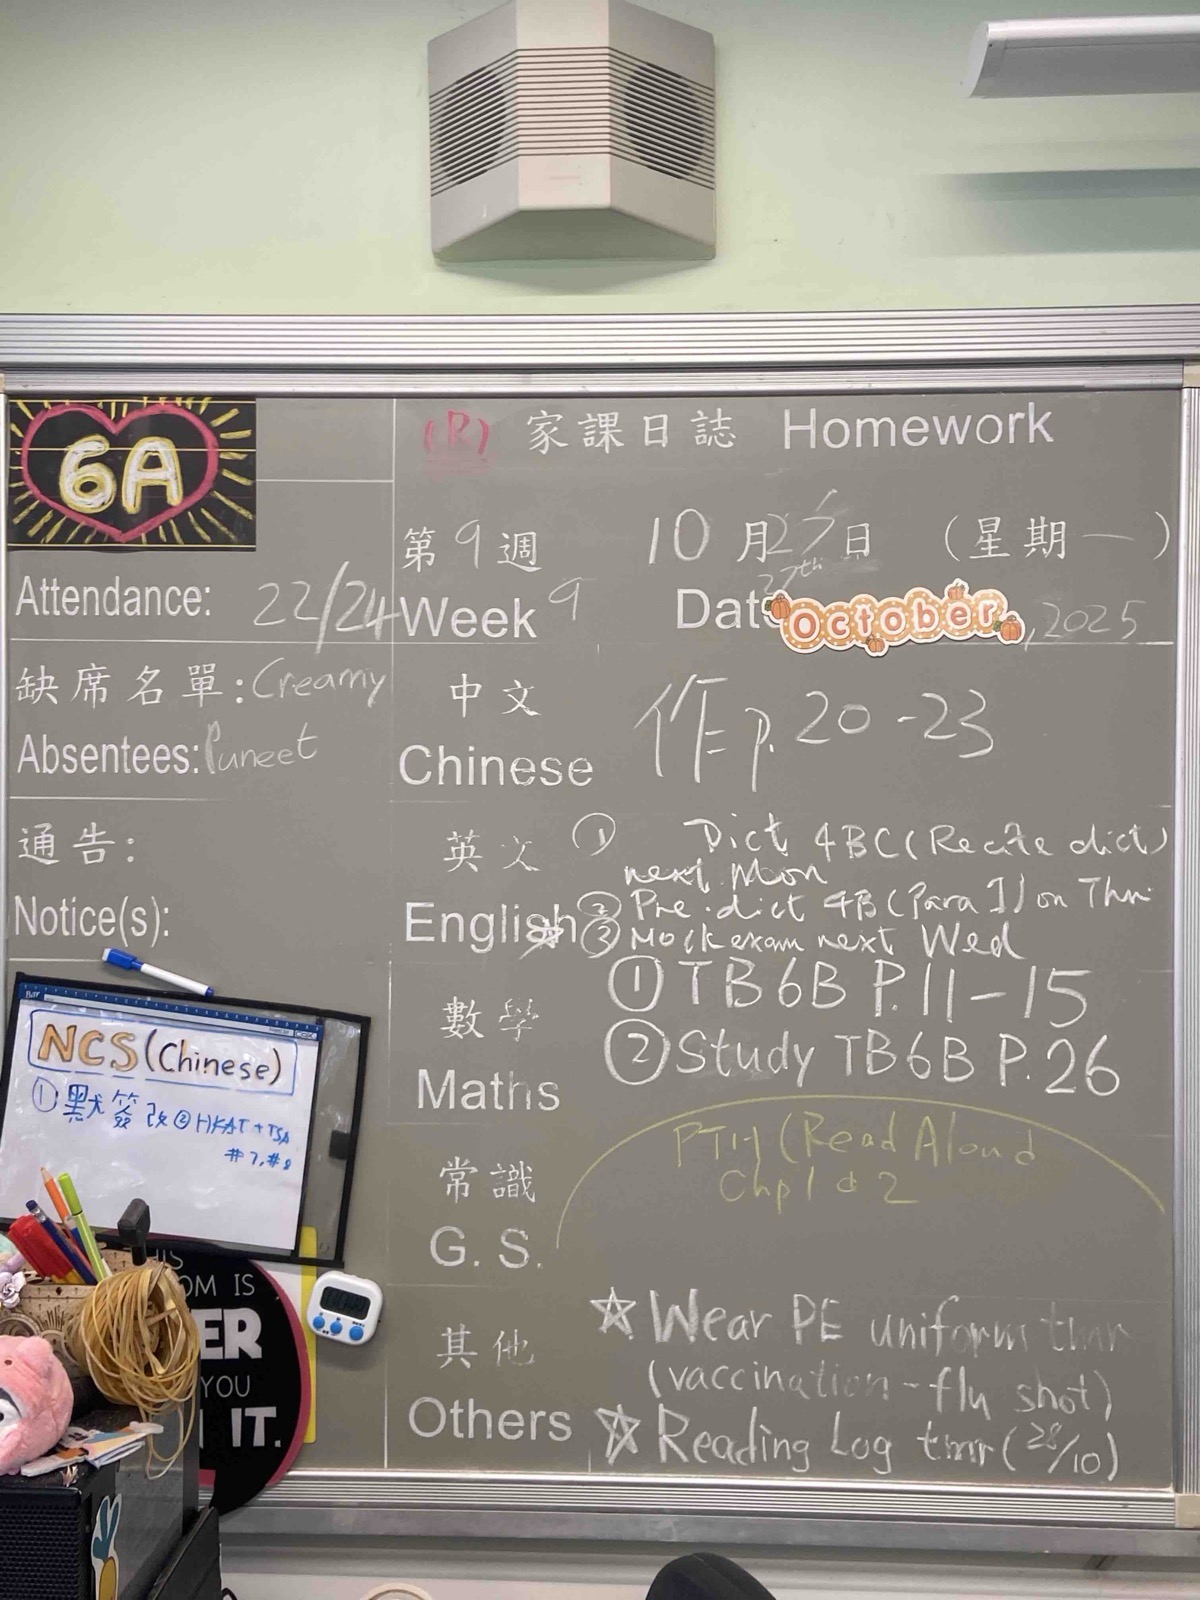 6A
(R) 家課日誌 Homework
第9週 10月27日 (星期一)
Week 9 Date 27th October, 2025
Attendance: 22/24
缺席名單: Creamy
Absentees: Puneet
通告:
Notice(s):
中文
Chinese
作 p. 20-23
英文
English
① Dict 4BC (Recite dict)
next Mon
② Pre-dict 4B (Para 1) on Thur
☆ ③ Mock exam next Wed
數學
Maths
① TB6B P.11-15
② Study TB6B P.26
常識
G. S.
PTH (Read Aloud
Chp 1 & 2
其他
Others
☆ Wear PE uniform tmr
(vaccination - flu shot)
☆ Reading Log tmr (28/10)
NCS (Chinese)
① 默簽改 ② HKAT + TSA
#7, #8
OM IS
ER
YOU
IT.